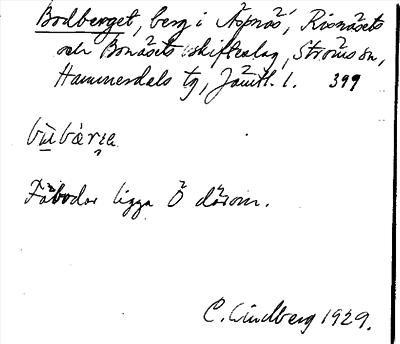 Bodberget, berg i Äspnäs, Risnäsets
och Bonäsets skifteslag, Ströms sn,
Hammerdals tg, Jämtl. l. 399
Fäbodar ligga Ö därom.
C. Lindberg 1929.